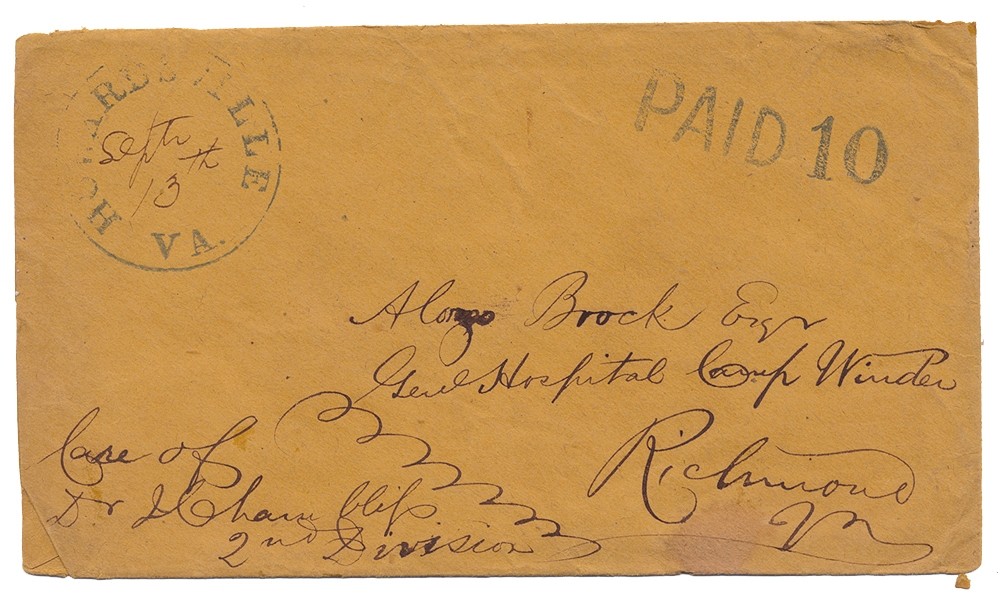 HOWARDSVILLE
Septr
13th
VA.
PAID 10
Alonzo Brock Esqr
Genl Hospital Camp Winder
Richmond
Va
Care of
Dr
2nd Division